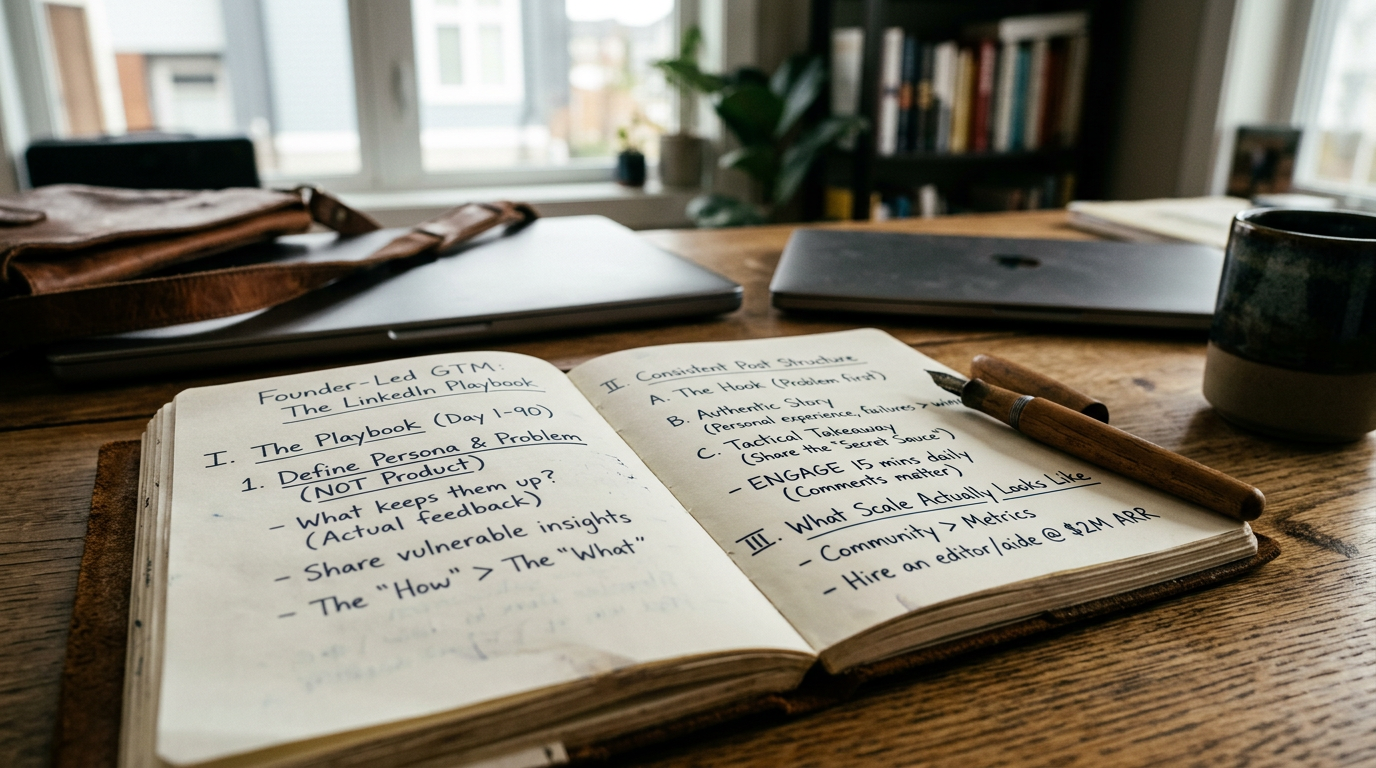 Founder-Led GTM:
The LinkedIn Playbook
I. The Playbook (Day 1-90)
1. Define Persona & Problem
(NOT Product)
- What keeps them up?
(Actual feedback)
- Share vulnerable insights
- The "How" > The "What"
II. Consistent Post Structure
A. The Hook (Problem first)
B. Authentic Story
(Personal experience, failures >
C. Tactical Takeaway
(Share the "Secret Sauce")
- ENGAGE 15 mins daily
(Comments matter)
III. What Scale Actually Looks Like
- Community > Metrics
- Hire an editor/aide @ $2M ARR